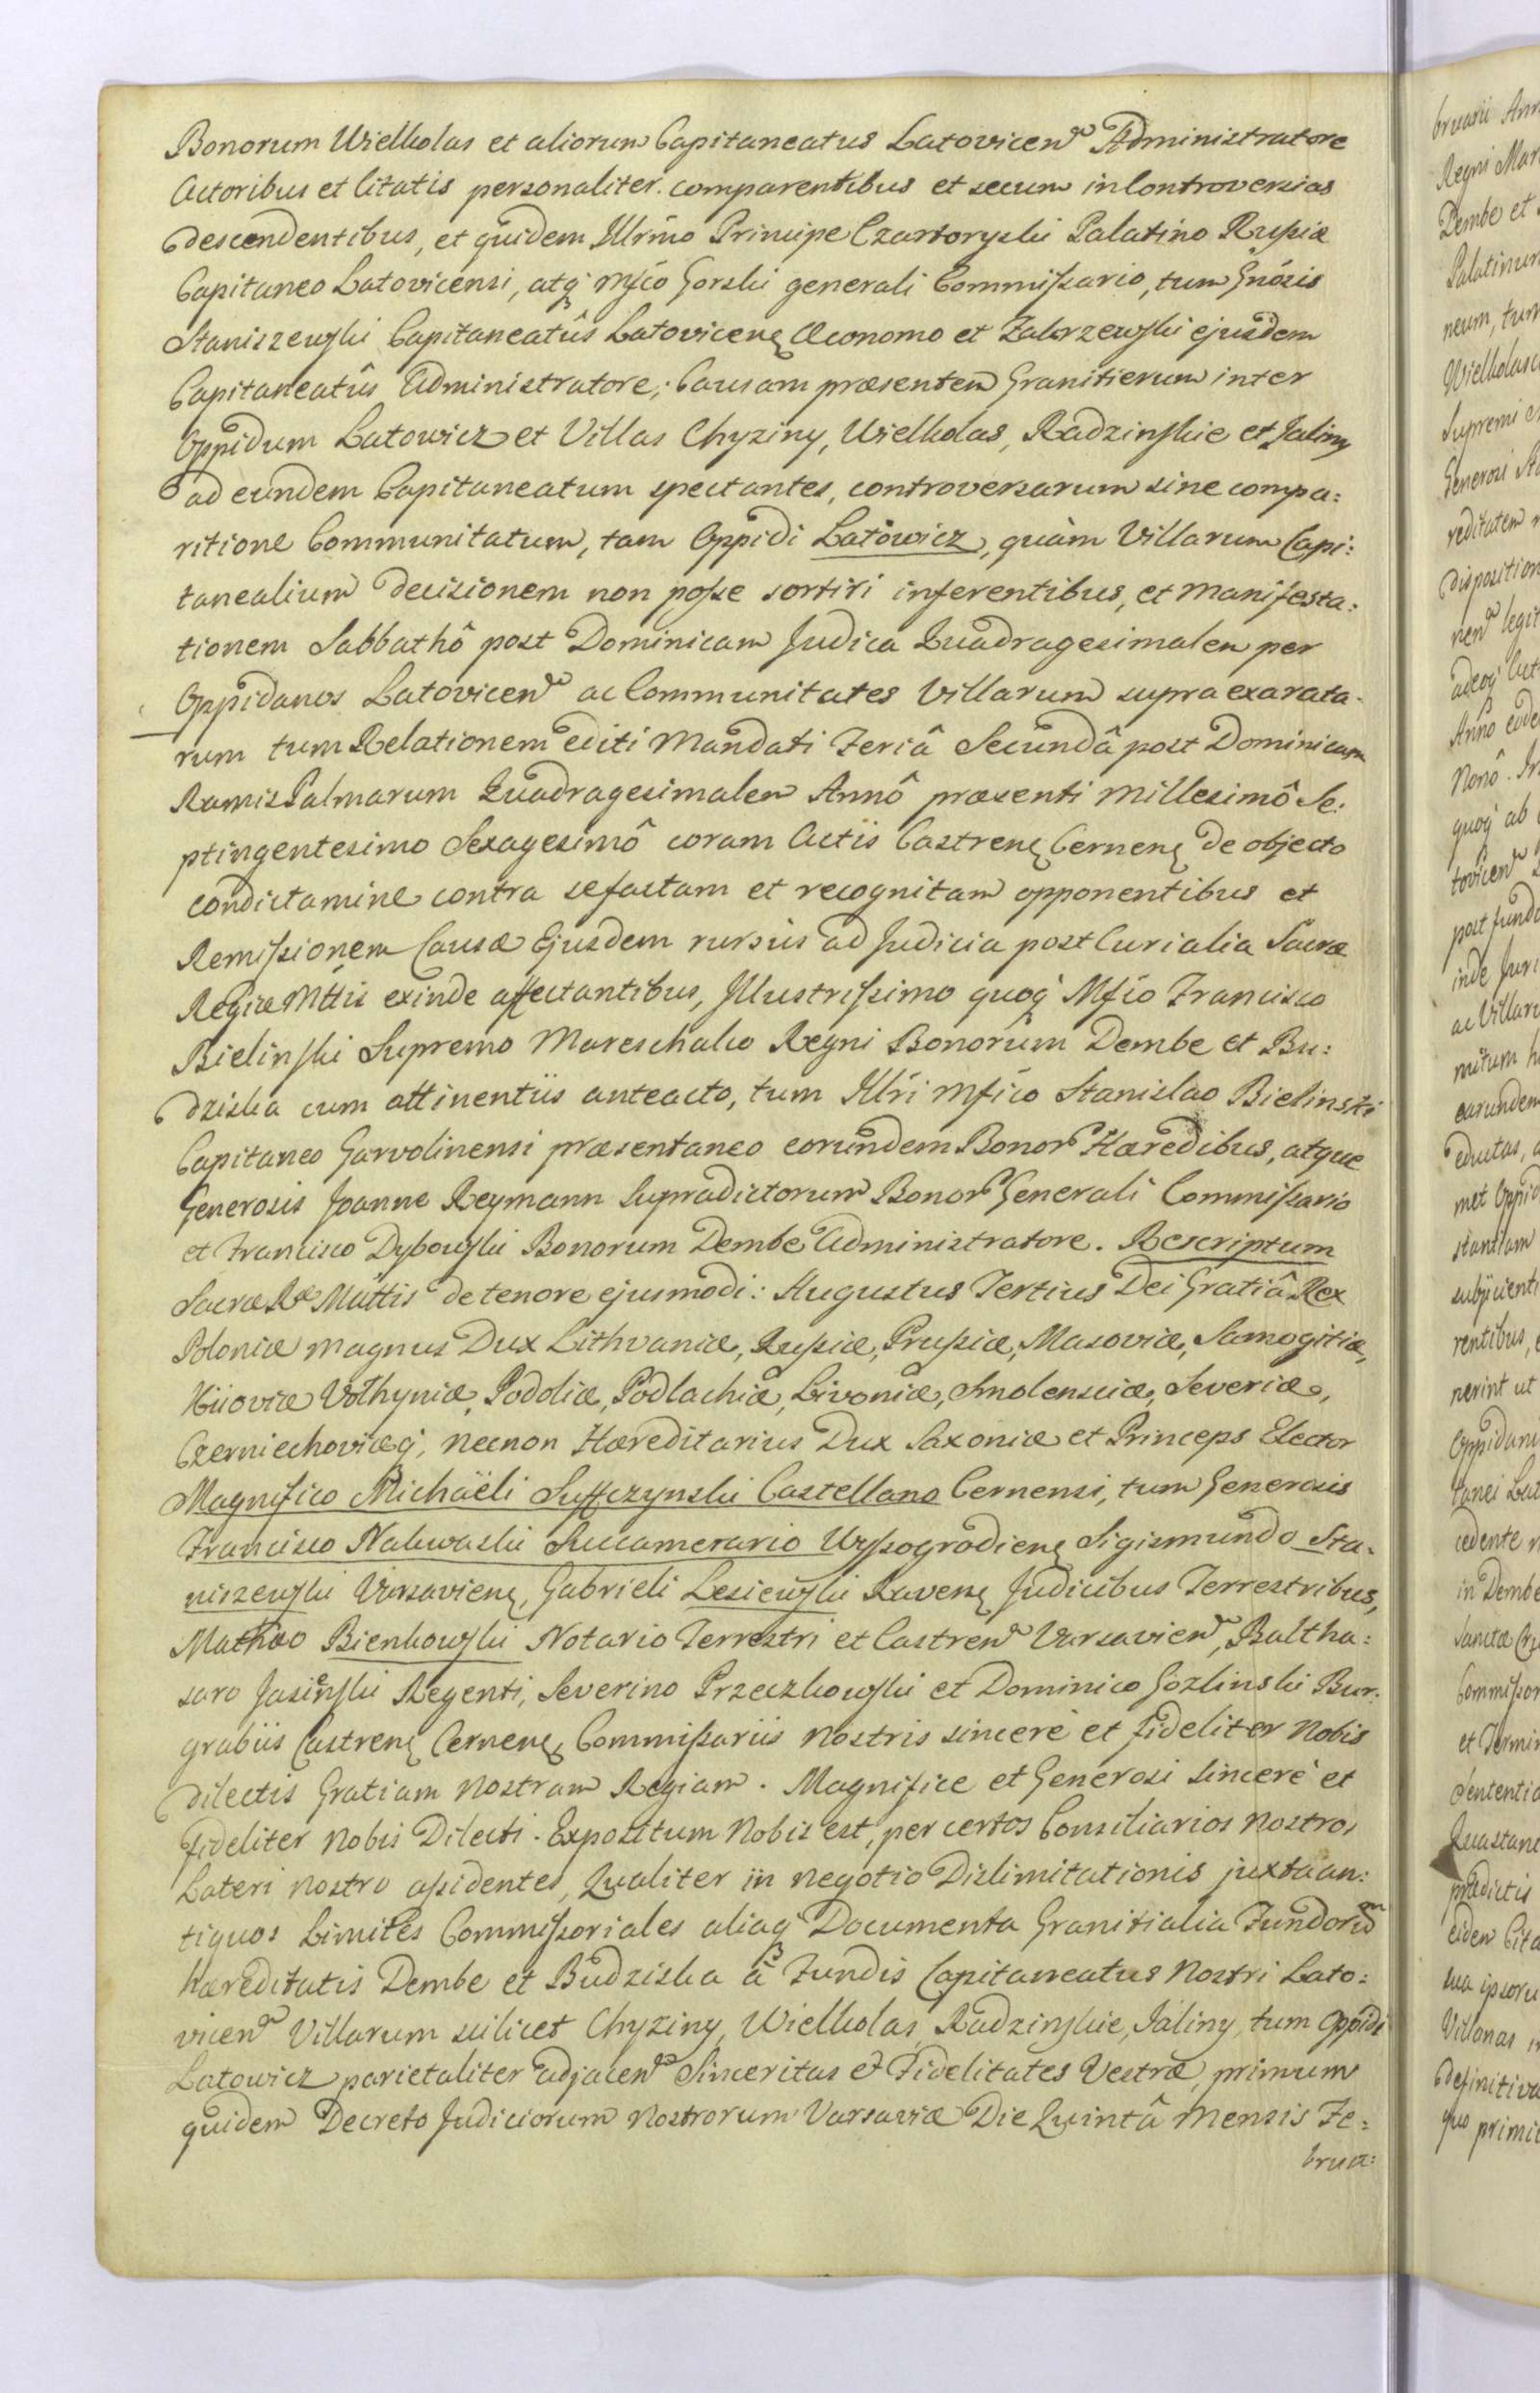 Bonorum Wielkolas et aliorum Capitaneatus Latovicen Administratore
Actoribus et Citatis personaliter comparentibus et secum in Controversias
descendentibus, et quidem Illrmo Principe Czartoryski Palatino Russiæ
Capitaneo Latovicensi, atq mfco Gorski generali Commissario, tum Gnosis
Staniszewski Capitaneatûs Latovicens Œconomo et Zakrzewski ejusdem
Capitaneatûs Administratore; Causam præsentem Granitierum inter
Oppidum Latowicz et Villas Chyziny, Wielkolas, Radzinskie et Jaliny
ad eundem Capitaneatum spectantes, controversarum sine compa:
ritione Communitatum, tam Oppidi Latowicz, quàm Villarum Capi:
tanealium decisionem non posse sortiri inferentibus, et Manifesta:
tionem Sabbathô post Dominicam Judica Quadragesimalem per
Oppidanos Latovicen ac Communitates Villarum supra exarata-
rum tum Relationem editi Mandati Feriâ Secundâ post Dominicam
Ramis Palmarum Quadragesimalem Annô præsenti Millesimô Se:
ptingentesimo Sexagesimô coram Actis Castrens Cernens de objecto
condictamine contra se factam et recognitam opponentibus et
Remissionem Causæ Ejusdem rursùs ad Judicia post Curialia Sacræ
Regiæ Mttis exinde affectantibus, Illustrissimo quoq Mfco Francisco
Bielinski Supremo Mareschalco Regni Bonorum Dembe et Bu:
dziska cum attinentiis anteacto, tum Illri Mfico Stanislao Bielinski
Capitaneo Garvolinensi præsentaneo eorundem Bonor Hæredibus, atque
Generosis Joanne Reymann Supradictorum Bonor Generali Commissario
et Francisco Dybowski Bonorum Dembe Administratore. Rescriptum
Sacræ Ræ Mattis de tenore ejusmodi: Augustus Tertius Dei Gratiâ Rex
Poloniæ Magnus Dux Lithvaniæ, Russiæ, Prussiæ, Masoviæ, Samogitiæ,
Kiioviæ Volhyniæ, Podoliæ, Podlachiæ, Livoniæ, Smolensciæ, Severiæ,
Czerniechoviæq, necnon Hæreditarius Dux Saxoniæ et Princeps Elector
Magnifico Michaëli Suffczynski Castellano Cernensi, tum Generosis
Francisco Nakwaski Succamerario Wyssogrodiens Sigismundo Sta-
niszewski Varsaviens, Gabrieli Lesiewski Ravens Judicibus Terrestribus,
Mathæo Bienkowski Notario Terrestri et Castren Varsavien, Baltha:
saro Jasinski Regenti, Severino Przeczkowski et Dominico Gozlinski Bur:
grabiis Castrens Cernens Commissariis Nostris sincerè et fideliter Nobis
dilectis Gratiam Nostram Regiam. Magnifice et Generosi sincerè et
fideliter Nobis Dilecti. Expositum Nobis est, per certos Consiliarios Nostros
Lateri nostro assidentes, Qualiter in negotio Dislimitationis juxta an:
tiquos Limites Commissoriales aliaq Documenta Granitialia Fundorum
hæreditatis Dembe et Budziska à Fundis Capitaneatus Nostri Lato:
vicen Villarum scilicet Chyziny, Wielkolas, Radzinskie, Jaliny, tum Oppidi
Latowicz parietaliter adjacen Sinceritas et Fidelitates Vestræ, primum
quidem Decreto Judiciorum Nostrorum Varsaviæ Die Quintâ Mensis Fe:
brua: